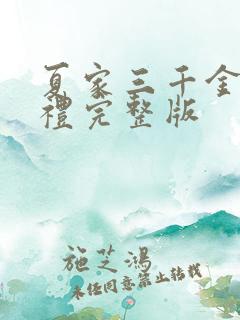 夏家三千金
禮完整版
施芝鴻
未經同意禁止轉載